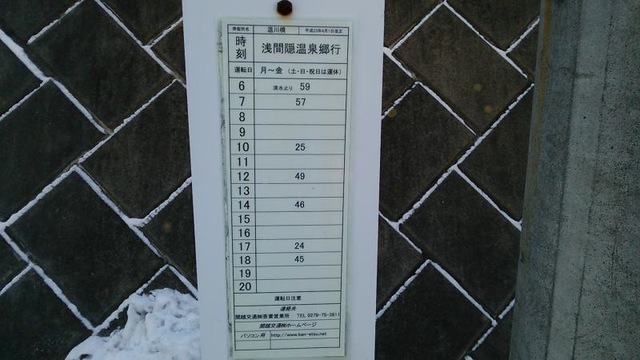 停留所名 温川橋 平成23年4月1日改正
時刻 浅間隠温泉郷行
運転日 月～金 (土・日・祝日は運休)
6 清水より 59
7 57
8
9
10 25
11
12 49
13
14 46
15
16
17 24
18 45
19
20
運転日注意
連絡先
関越交通㈱吾妻営業所 TEL 0279-75-3811
関越交通㈱ホームページ
パソコン用 http://www.kan-etsu.net